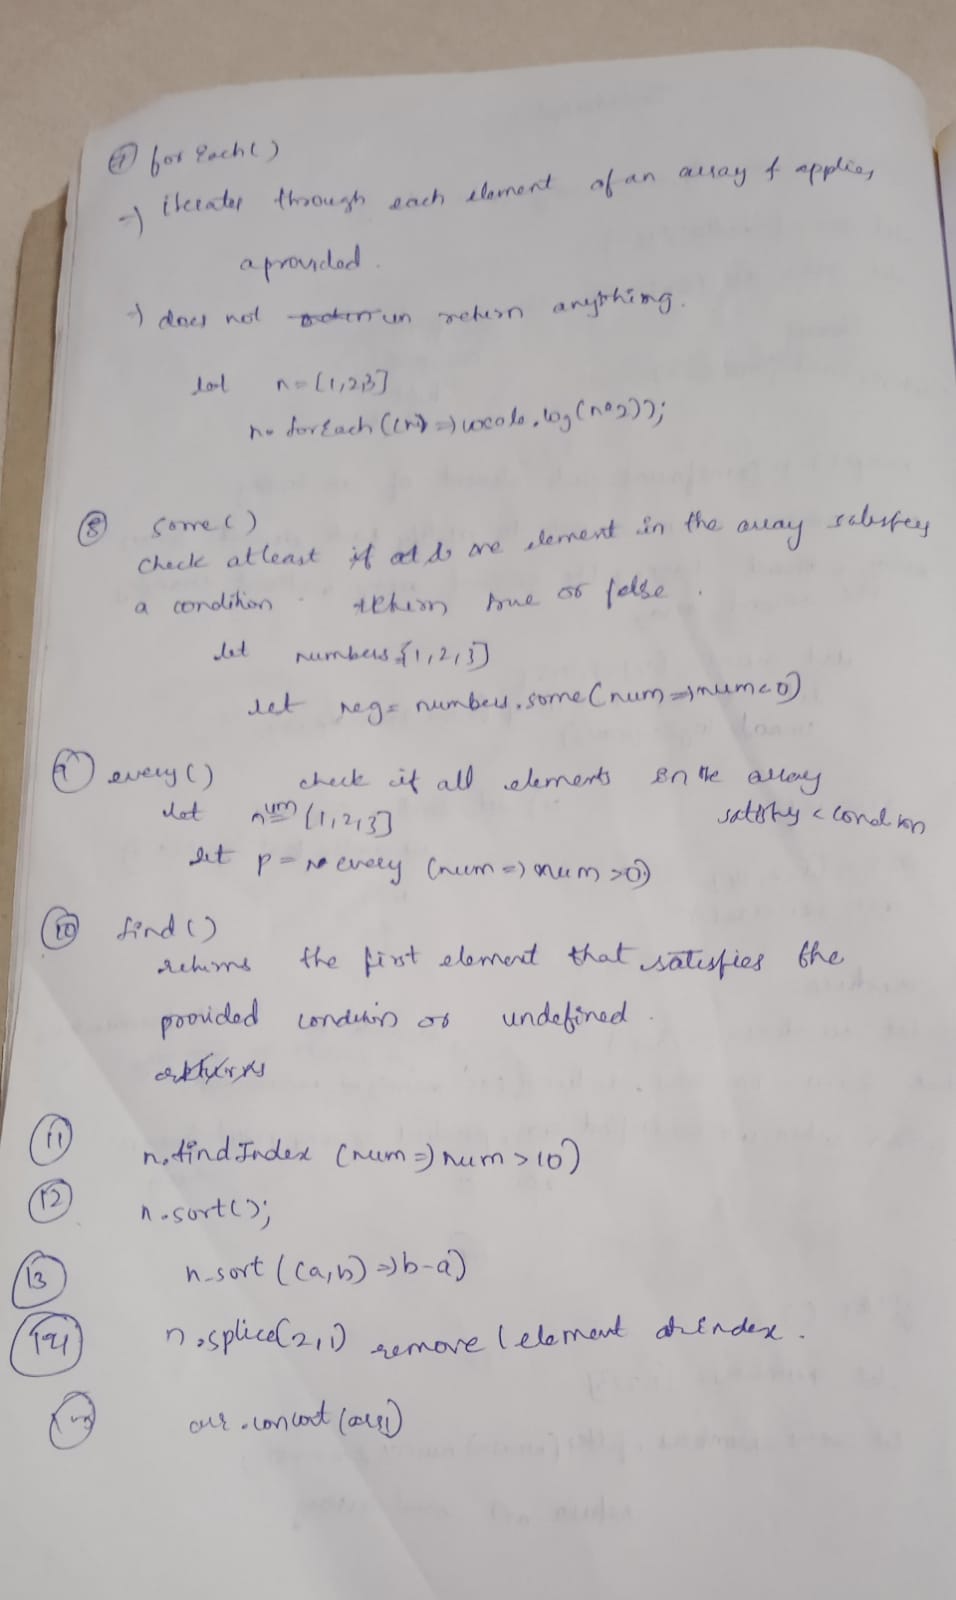 ⑦ forEach()
→ iterates through each element of an array & applies
a provided.
→ does not return anything.
let n=[1,2,3]
n.forEach((n)=>console.log(n*2));
⑧ some()
check atleast if one element in the array satisfies
a condition. return true or false.
let numbers [1,2,3]
let neg = numbers.some(num=>num<0)
⑨ every() check if all elements in the array
let num [1,2,3] satisfy a condition
let p = n.every (num=>num>0)
⑩ find()
returns the first element that satisfies the
provided condition or undefined.
⑪ n.findIndex (num=>num>10)
⑫ n.sort();
⑬ n.sort((a,b)=>b-a)
⑭ n.splice(2,1) remove 1 element at index.
⑮ arr.concat(arr1)